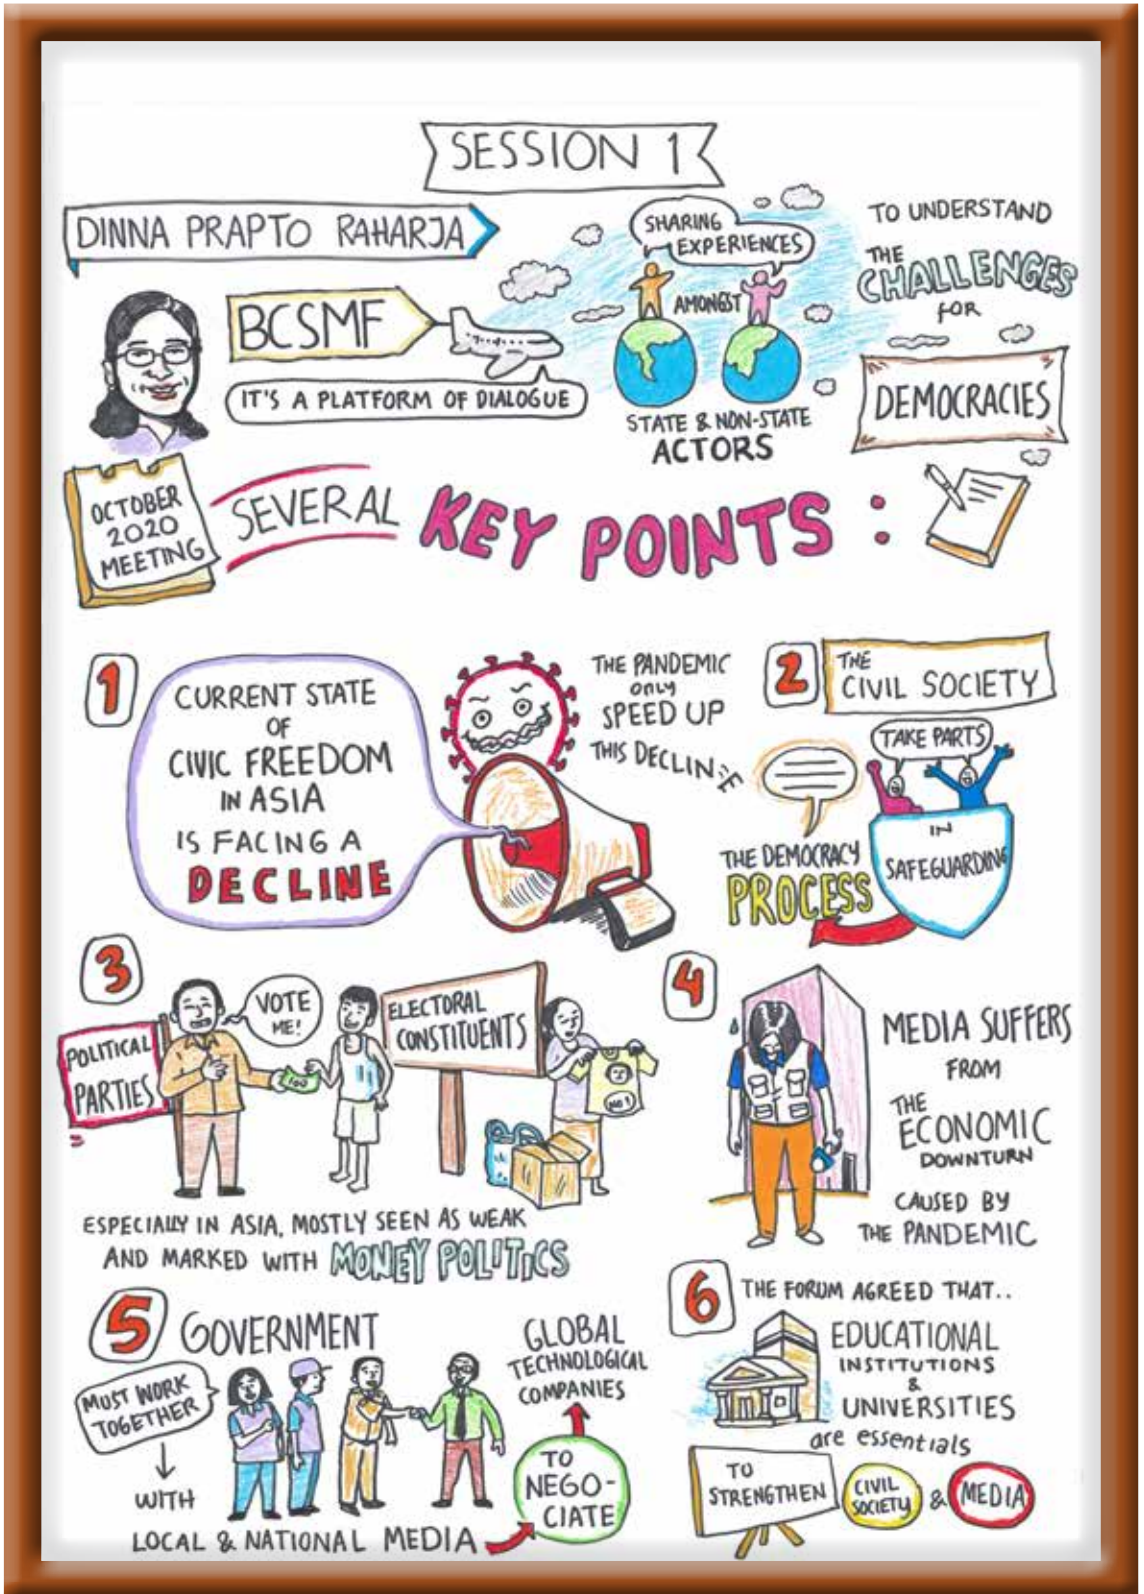 SESSION 1
DINNA PRAPTO RAHARJA
BCSMF
IT'S A PLATFORM OF DIALOGUE
SHARING
EXPERIENCES
AMONGST
STATE & NON-STATE
ACTORS
TO UNDERSTAND
THE
CHALLENGES
FOR
DEMOCRACIES
OCTOBER
2020
MEETING
SEVERAL
KEY POINTS:
1
CURRENT STATE
OF
CIVIC FREEDOM
IN ASIA
IS FACING A
DECLINE
THE PANDEMIC
only
SPEED UP
THIS DECLINE
2
THE
CIVIL SOCIETY
TAKE PARTS
IN
SAFEGUARDING
THE DEMOCRACY
PROCESS
3
POLITICAL
PARTIES
VOTE
ME!
100
ELECTORAL
CONSTITUENTS
NO 1
ESPECIALLY IN ASIA, MOSTLY SEEN AS WEAK
AND MARKED WITH MONEY POLITICS
4
MEDIA SUFFERS
FROM
THE
ECONOMIC
DOWNTURN
CAUSED BY
THE PANDEMIC
5
GOVERNMENT
MUST WORK
TOGETHER
WITH
LOCAL & NATIONAL MEDIA
TO
NEGO-
CIATE
GLOBAL
TECHNOLOGICAL
COMPANIES
6
THE FORUM AGREED THAT..
EDUCATIONAL
INSTITUTIONS
&
UNIVERSITIES
are essentials
TO
STRENGTHEN
CIVIL
SOCIETY
&
MEDIA